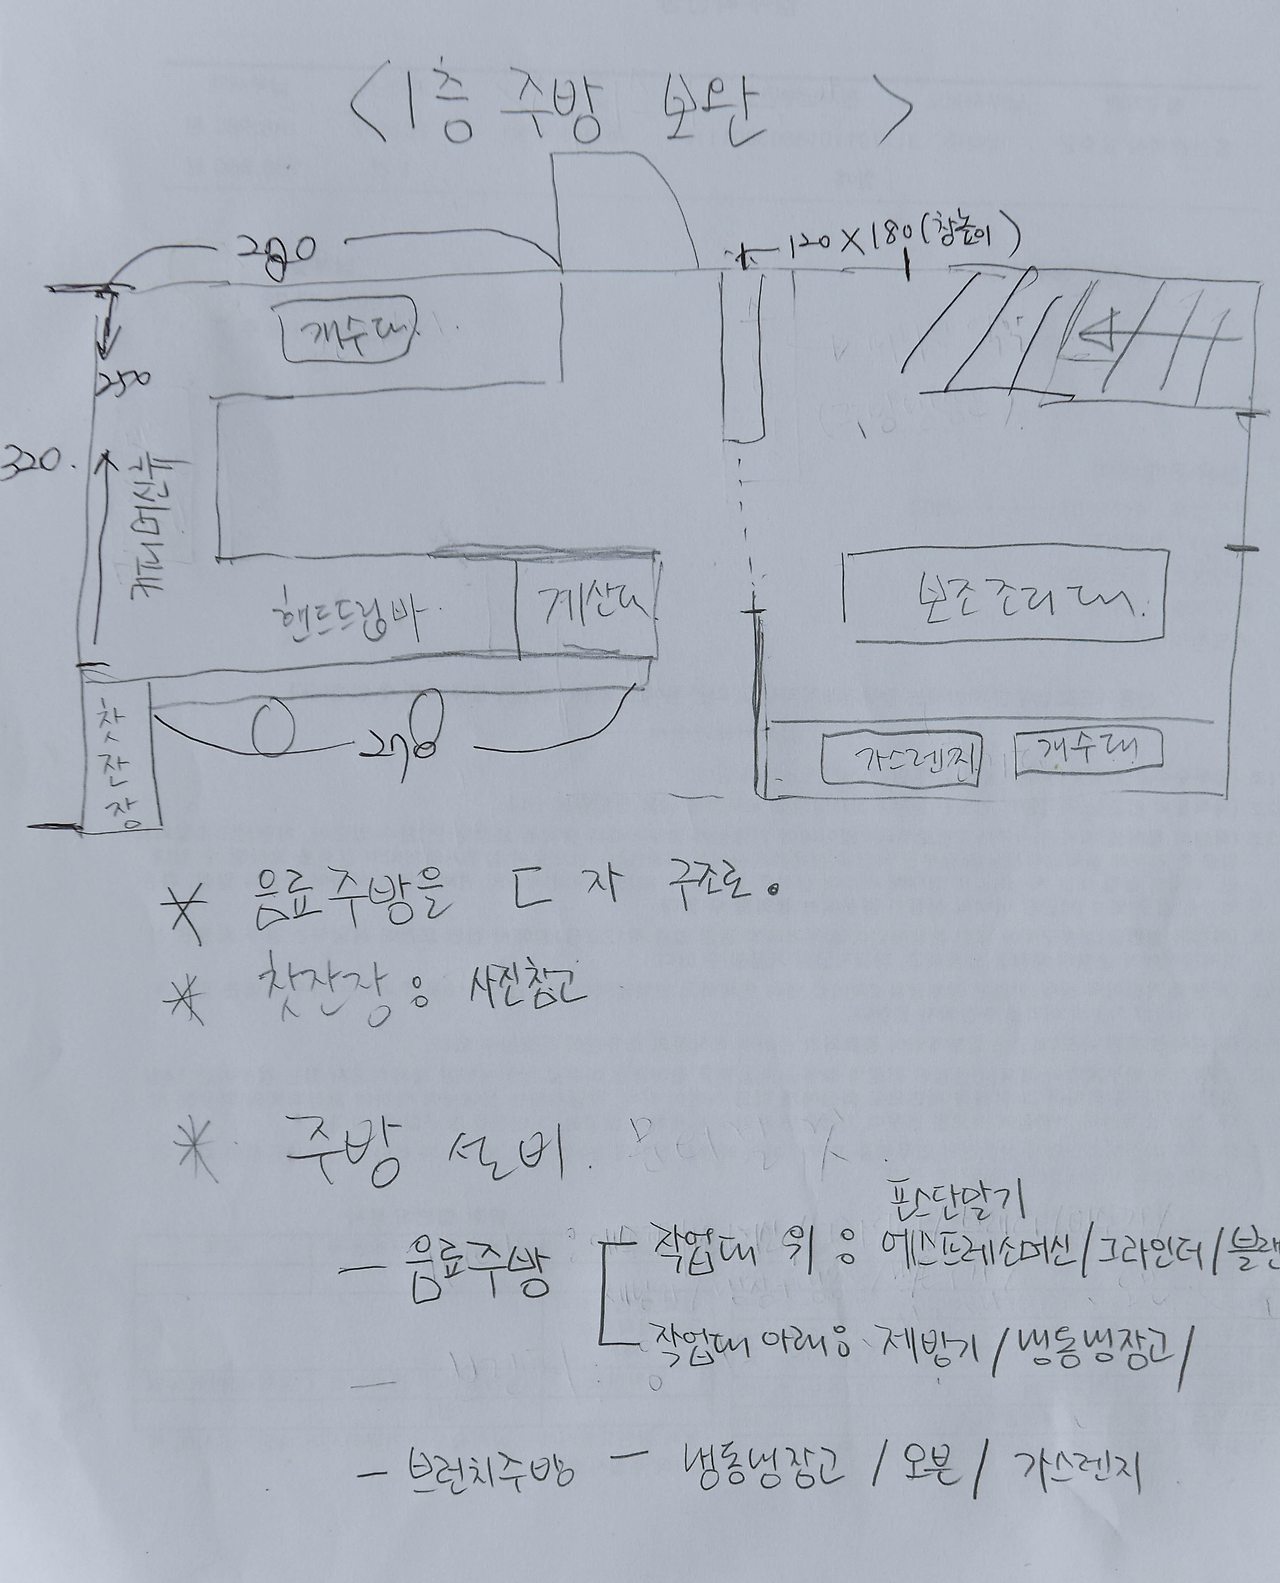 <1층 주방 보완>
280
120 X 180 (창높이)
개수대
250
320.
커피머신류
핸드드립바
계산대
보조조리대.
찻잔장
270
가스렌찌
개수대
* 음료주방을 ㄷ자 구조로.
* 찻잔장 : 사진참고
* 주방 설비.
포스단말기
- 음료주방
작업대 위 : 에스프레소머신/그라인더/블랜
작업대 아래 : 제빙기/냉동냉장고/
- 브런치주방 - 냉동냉장고/오븐/가스렌지